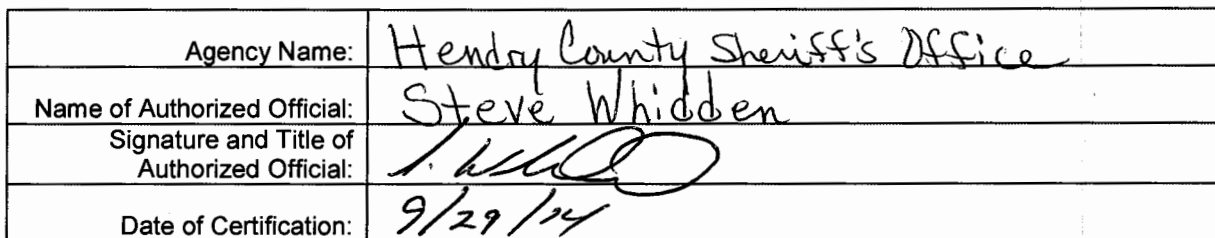 Agency Name: Hendry County Sheriff's Office
Name of Authorized Official: Steve Whidden
Signature and Title of
Authorized Official: S. Whidden
Date of Certification: 9/29/14